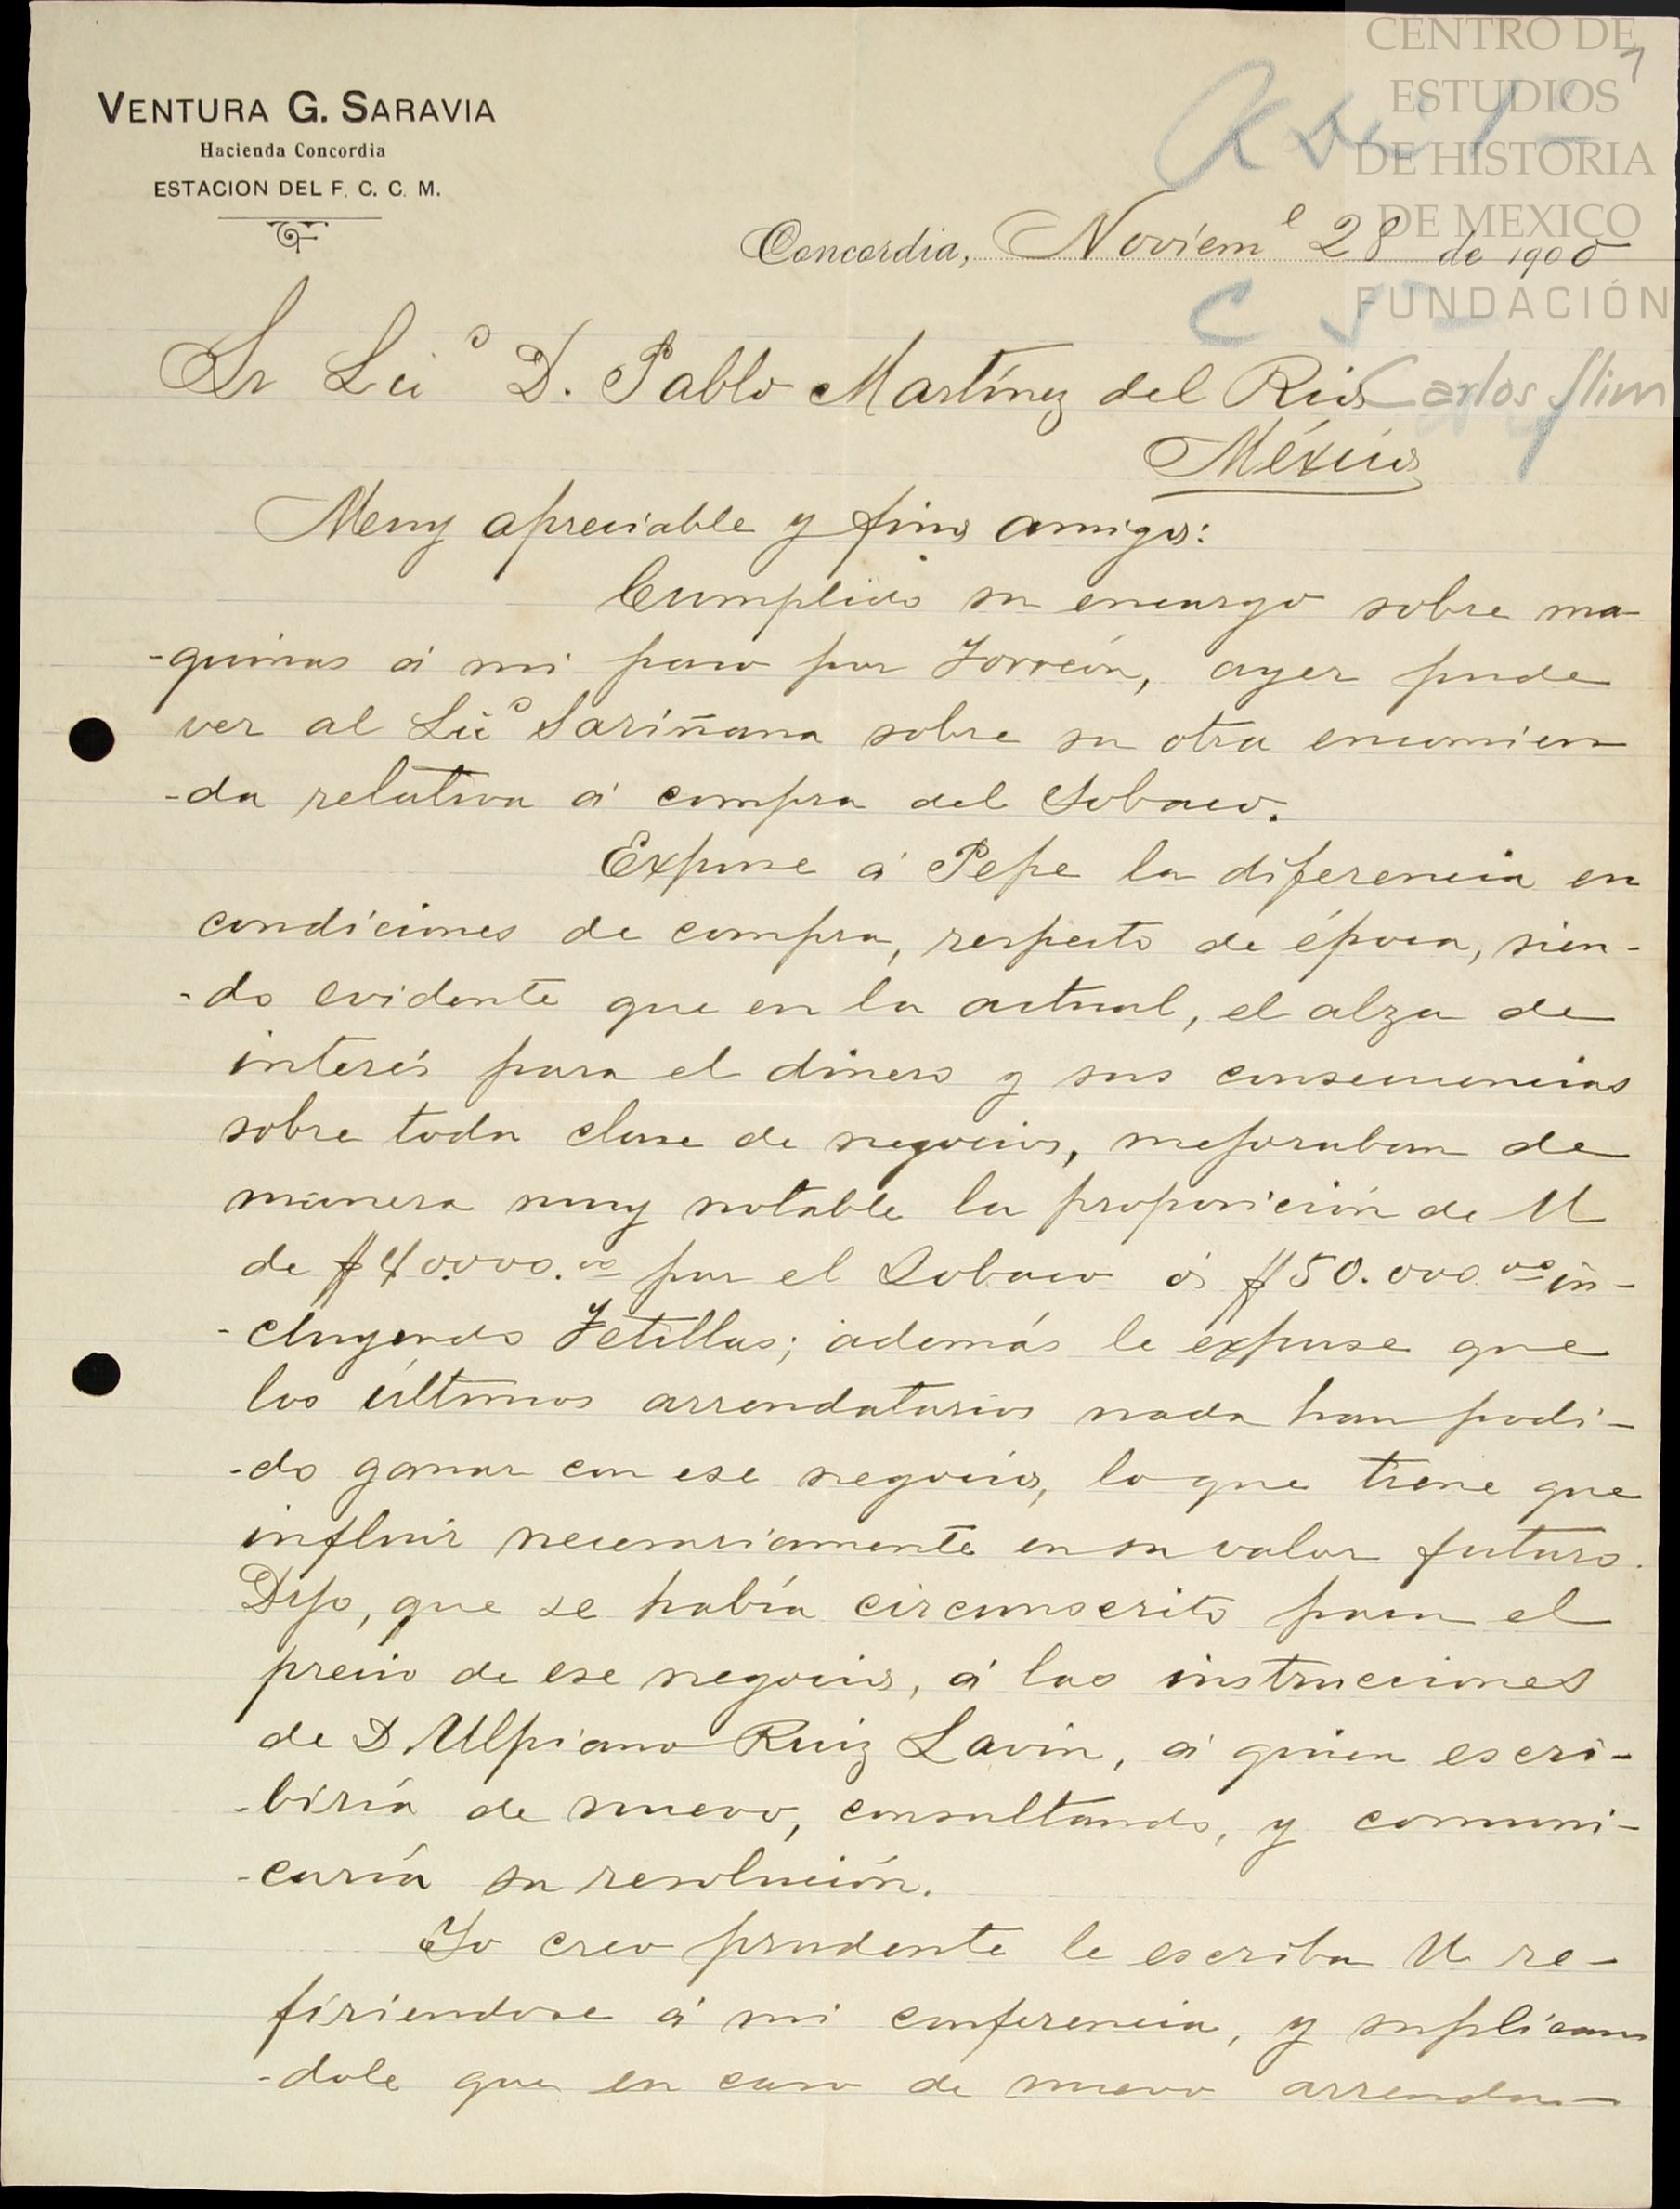 VENTURA G. SARAVIA
Hacienda Concordia
ESTACION DEL F. C. C. M.
CENTRO DE
ESTUDIOS
DE HISTORIA
DE MEXICO
FUNDACIÓN
Carlos Slim
Concordia, Noviem e 28 de 1900
Sr Lic o D. Pablo Martínez del Rio
México
Muy apreciable y fino amigo:
Cumplido su encargo sobre ma-
-quinas á mi paso por Torreón, ayer pude
ver al Lic o Sariñana sobre su otra encomien
-da relativa á compra del Sobaco.
Expuse á Pepe la diferencia en
condiciones de compra, respecto de época, sien-
-do evidente que en la actual, el alza de
interés para el dinero y sus consecuencias
sobre toda clase de negocios, mejoraban de
manera muy notable la proposición de U
de $40.000.00 por el Sobaco ó $50.000.00 in-
-cluyendo Tetillas; además le expuse que
los últimos arrendatarios nada han podi-
-do ganar con ese negocio, lo que tiene que
influir necesariamente en su valor futuro.
Dijo, que se había circunscrito para el
precio de ese negocio, á las instrucciones
de D Ulpiano Ruiz Lavin, á quien escri-
-biría de nuevo, consultando, y comuni-
-caría su resolución.
Yo creo prudente le escriba U re-
firiendose á mi conferencia, y suplican
-dole que en caso de nuevo arrenda-